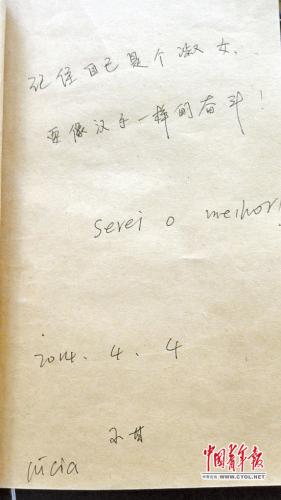 记住自己是个淑女、
要像汉子一样的奋斗！
serei o melhor!
2014. 4. 4
不甘
Lúcia
中国青年报
中青在线 WWW.CYOL.NET